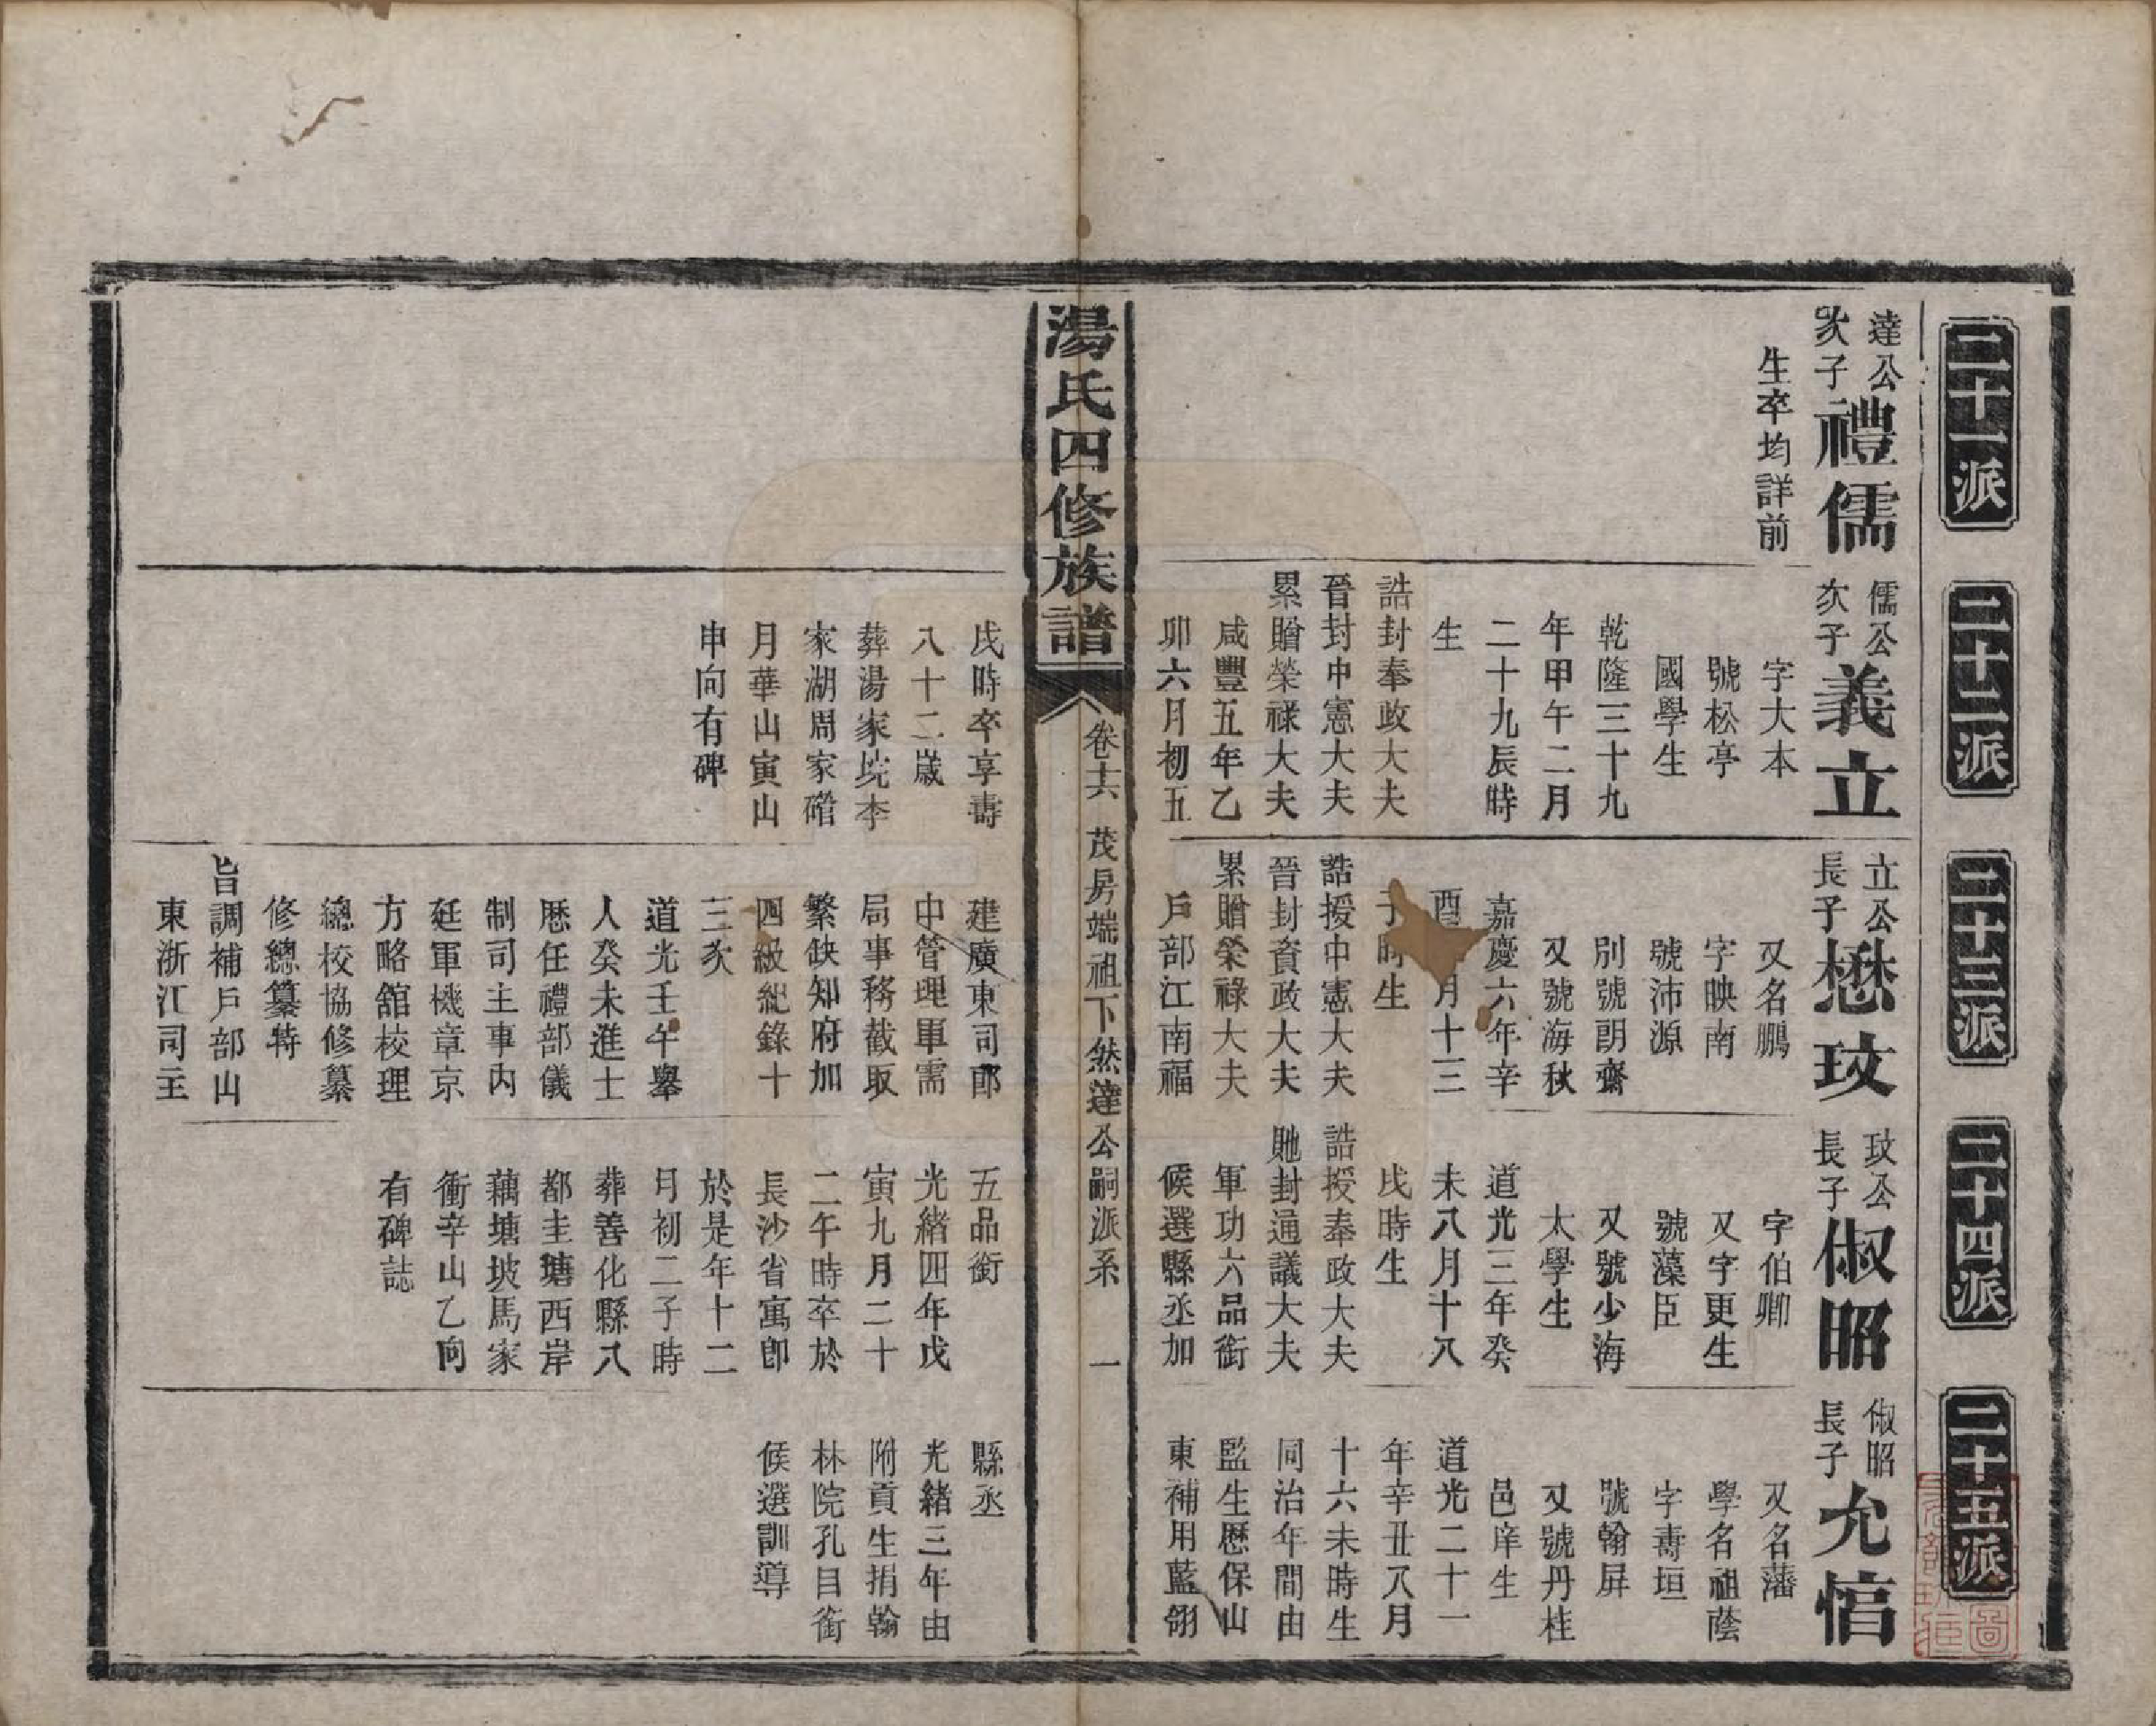 二十一派
二十二派
二十三派
二十四派
二十五派
達公
次子
禮儒
生卒均詳前
儒公
次子
義立
字大本
號松亭
國學生
乾隆三十九
年甲午二月
二十九辰時
生
誥封奉政大夫
晉封中憲大夫
累贈榮祿大夫
咸豐五年乙
卯六月初五
戌時卒享壽
八十二歲
葬湯家垸李
家湖周家𥕢
月華山寅山
申向有碑
立公
長子
懋玟
又名鵬
字映南
號沛源
別號朗齋
又號海秋
嘉慶六年辛
酉 月十三
子時生
誥授中憲大夫
晉封資政大夫
累贈榮祿大夫
戶部江南福
建廣東司郎
中管理軍需
局事務截取
繁缺知府加
四級紀錄十
三次
道光壬午舉
人癸未進士
歷任禮部儀
制司主事內
廷軍機章京
方略舘校理
總校協修纂
修總纂特
旨調補戶部山
東浙江司主
玟公
長子
俶昭
字伯卿
又字更生
號藻臣
又號少海
太學生
道光三年癸
未八月十八
戌時生
誥授奉政大夫
貤封通議大夫
軍功六品銜
候選縣丞加
五品銜
光緒四年戊
寅九月二十
二午時卒於
長沙省寓卽
於是年十二
月初二子時
葬善化縣八
都圭塘西岸
藕塘坡馬家
衝辛山乙向
有碑誌
俶昭
長子
允愔
又名藩
學名祖蔭
字壽垣
號翰屏
又號丹桂
邑庠生
道光二十一
年辛丑八月
十六未時生
同治年間由
監生歷保山
東補用藍翎
縣丞
光緒三年由
附貢生捐翰
林院孔目銜
候選訓導
湯氏四修族譜
卷十六
茂房端祖下然達公嗣派系
一